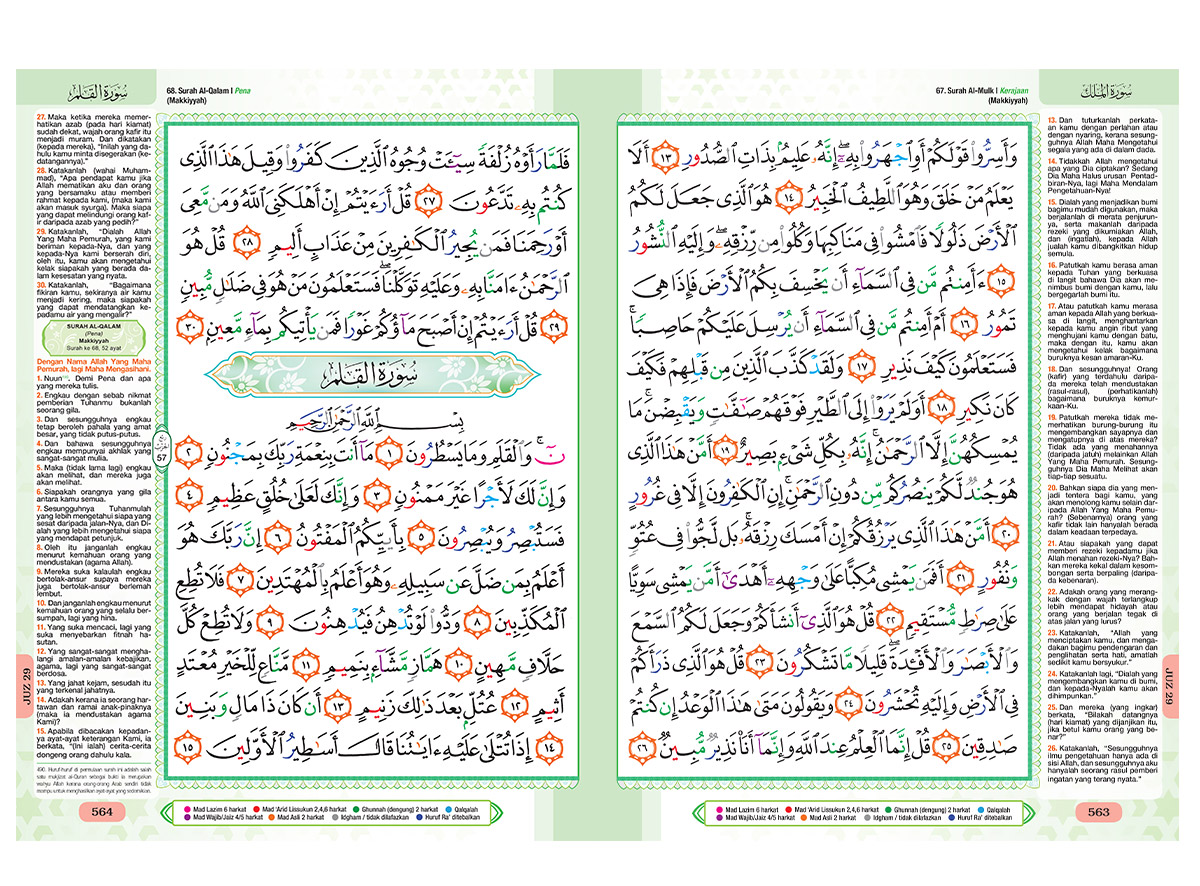 67. Surah Al-Mulk | Kerajaan
(Makkiyyah)
سُورَةُ المُلْكِ
وَأَسِرُّوا۟ قَوْلَكُمْ أَوِ ٱجْهَرُوا۟ بِهِۦٓ ۖ إِنَّهُۥ عَلِيمٌۢ بِذَاتِ ٱلصُّدُورِ ١٣ أَلَا
يَعْلَمُ مَنْ خَلَقَ وَهُوَ ٱللَّطِيفُ ٱلْخَبِيرُ ١٤ هُوَ ٱلَّذِى جَعَلَ لَكُمُ
ٱلْأَرْضَ ذَلُولًا فَٱمْشُوا۟ فِى مَنَاكِبِهَا وَكُلُوا۟ مِن رِّزْقِهِۦ ۖ وَإِلَيْهِ ٱلنُّشُورُ
١٥ ءَأَمِنتُم مَّن فِى ٱلسَّمَآءِ أَن يَخْسِفَ بِكُمُ ٱلْأَرْضَ فَإِذَا هِىَ
تَمُورُ ١٦ أَمْ أَمِنتُم مَّن فِى ٱلسَّمَآءِ أَن يُرْسِلَ عَلَيْكُمْ حَاصِبًا ۖ
فَسَتَعْلَمُونَ كَيْفَ نَذِيرِ ١٧ وَلَقَدْ كَذَّبَ ٱلَّذِينَ مِن قَبْلِهِمْ فَكَيْفَ
كَانَ نَكِيرِ ١٨ أَوَلَمْ يَرَوْا۟ إِلَى ٱلطَّيْرِ فَوْقَهُمْ صَـٰٓفَّـٰتٍ وَيَقْبِضْنَ ۚ مَا
يُمْسِكُهُنَّ إِلَّا ٱلرَّحْمَـٰنُ ۚ إِنَّهُۥ بِكُلِّ شَىْءٍۭ بَصِيرٌ ١٩ أَمَّنْ هَـٰذَا ٱلَّذِى
هُوَ جُندٌ لَّكُمْ يَنصُرُكُم مِّن دُونِ ٱلرَّحْمَـٰنِ ۚ إِنِ ٱلْكَـٰفِرُونَ إِلَّا فِى غُرُورٍ
٢٠ أَمَّنْ هَـٰذَا ٱلَّذِى يَرْزُقُكُمْ إِنْ أَمْسَكَ رِزْقَهُۥ ۚ بَل لَّجُّوا۟ فِى عُتُوٍّ
وَنُفُورٍ ٢١ أَفَمَن يَمْشِى مُكِبًّا عَلَىٰ وَجْهِهِۦٓ أَهْدَىٰٓ أَمَّن يَمْشِى سَوِيًّا
عَلَىٰ صِرَٰطٍ مُّسْتَقِيمٍ ٢٢ قُلْ هُوَ ٱلَّذِىٓ أَنشَأَكُمْ وَجَعَلَ لَكُمُ ٱلسَّمْعَ
وَٱلْأَبْصَـٰرَ وَٱلْأَفْـِٔدَةَ ۖ قَلِيلًا مَّا تَشْكُرُونَ ٢٣ قُلْ هُوَ ٱلَّذِى ذَرَأَكُمْ
فِى ٱلْأَرْضِ وَإِلَيْهِ تُحْشَرُونَ ٢٤ وَيَقُولُونَ مَتَىٰ هَـٰذَا ٱلْوَعْدُ إِن كُنتُمْ
صَـٰدِقِينَ ٢٥ قُلْ إِنَّمَا ٱلْعِلْمُ عِندَ ٱللَّهِ وَإِنَّمَآ أَنَا۠ نَذِيرٌ مُّبِينٌ ٢٦
13. Dan tuturkanlah perkata-
an kamu dengan perlahan atau
dengan nyaring, kerana sesung-
guhnya Allah Maha Mengetahui
segala yang ada di dalam dada.
14. Tidakkah Allah mengetahui
apa yang Dia ciptakan? Sedang
Dia Maha Halus urusan Pentad-
biran-Nya, lagi Maha Mendalam
Pengetahuan-Nya!
15. Dialah yang menjadikan bumi
bagimu mudah digunakan, maka
berjalanlah di merata penjurun-
ya, serta makanlah daripada
rezeki yang dikurniakan Allah,
dan (ingatlah), kepada Allah
jualah kamu dibangkitkan hidup
semula.
16. Patutkah kamu berasa aman
kepada Tuhan yang berkuasa
di langit bahawa Dia akan me-
nimbus bumi dengan kamu, lalu
bergegarlah bumi itu.
17. Atau patutkah kamu merasa
aman kepada Allah yang berkua-
sa di langit, menghantarkan
kepada kamu angin ribut yang
menghujani kamu dengan batu,
maka dengan itu, kamu akan
mengetahui kelak bagaimana
buruknya kesan amaran-Ku.
18. Dan sesungguhnya! Orang
(kafir) yang terdahulu daripa-
da mereka telah mendustakan
(rasul-rasul), (perhatikanlah)
bagaimana buruknya kemur-
kaan-Ku.
19. Patutkah mereka tidak me-
merhatikan burung-burung itu
mengembangkan sayapnya dan
mengatupnya di atas mereka?
Tidak ada yang menahannya
(daripada jatuh) melainkan Allah
Yang Maha Pemurah. Sesung-
guhnya Dia Maha Melihat akan
tiap-tiap sesuatu.
20. Bahkan siapa dia yang men-
jadi tentera bagi kamu, yang
akan menolong kamu selain dar-
ipada Allah Yang Maha Pemu-
rah? (Sebenarnya) orang yang
kafir tidak lain hanyalah berada
dalam keadaan terpedaya.
21. Atau siapakah yang dapat
memberi rezeki kepadamu jika
Allah menahan rezeki-Nya? Bah-
kan mereka kekal dalam kesom-
bongan serta berpaling (daripa-
da kebenaran).
22. Adakah orang yang merang-
kak dengan wajah terlangkup
lebih mendapat hidayah atau
orang yang berjalan tegak di
atas jalan yang lurus?
23. Katakanlah, "Allah yang
menciptakan kamu, dan menga-
dakan bagimu pendengaran dan
penglihatan serta hati, amatlah
sedikit kamu bersyukur."
24. Katakanlah lagi, "Dialah yang
mengembangkan kamu di bumi,
dan kepada-Nyalah kamu akan
dihimpunkan."
25. Dan mereka (yang ingkar)
berkata, "Bilakah datangnya
(hari kiamat) yang dijanjikan itu,
jika betul kamu orang yang be-
nar?"
26. Katakanlah, "Sesungguhnya
ilmu pengetahuan hanya ada di
sisi Allah, dan sesungguhnya aku
hanyalah seorang rasul pemberi
ingatan yang terang nyata."
JUZ 29
Mad Lazim 6 harkat Mad 'Arid Lissukun 2,4,6 harkat Ghunnah (dengung) 2 harkat Qalqalah
Mad Wajib/Jaiz 4/5 harkat Mad Asli 2 harkat Idgham / tidak dilafazkan Huruf Ra' ditebalkan
563
سُورَةُ القَلَمِ
68. Surah Al-Qalam | Pena
(Makkiyyah)
فَلَمَّا رَأَوْهُ زُلْفَةً سِيٓـَٔتْ وُجُوهُ ٱلَّذِينَ كَفَرُوا۟ وَقِيلَ هَـٰذَا ٱلَّذِى
كُنتُم بِهِۦ تَدَّعُونَ ٢٧ قُلْ أَرَءَيْتُمْ إِنْ أَهْلَكَنِىَ ٱللَّهُ وَمَن مَّعِىَ
أَوْ رَحِمَنَا فَمَن يُجِيرُ ٱلْكَـٰفِرِينَ مِنْ عَذَابٍ أَلِيمٍ ٢٨ قُلْ هُوَ
ٱلرَّحْمَـٰنُ ءَامَنَّا بِهِۦ وَعَلَيْهِ تَوَكَّلْنَا ۖ فَسَتَعْلَمُونَ مَنْ هُوَ فِى ضَلَـٰلٍ مُّبِينٍ
٢٩ قُلْ أَرَءَيْتُمْ إِنْ أَصْبَحَ مَآؤُكُمْ غَوْرًا فَمَن يَأْتِيكُم بِمَآءٍ مَّعِينٍۭ ٣٠
سُورَةُ القَلَمِ
بِسْمِ ٱللَّهِ ٱلرَّحْمَـٰنِ ٱلرَّحِيمِ
نٓ ۚ وَٱلْقَلَمِ وَمَا يَسْطُرُونَ ١ مَآ أَنتَ بِنِعْمَةِ رَبِّكَ بِمَجْنُونٍ ٢
وَإِنَّ لَكَ لَأَجْرًا غَيْرَ مَمْنُونٍ ٣ وَإِنَّكَ لَعَلَىٰ خُلُقٍ عَظِيمٍ ٤
فَسَتُبْصِرُ وَيُبْصِرُونَ ٥ بِأَييِّكُمُ ٱلْمَفْتُونُ ٦ إِنَّ رَبَّكَ هُوَ
أَعْلَمُ بِمَن ضَلَّ عَن سَبِيلِهِۦ وَهُوَ أَعْلَمُ بِٱلْمُهْتَدِينَ ٧ فَلَا تُطِعِ
ٱلْمُكَذِّبِينَ ٨ وَدُّوا۟ لَوْ تُدْهِنُ فَيُدْهِنُونَ ٩ وَلَا تُطِعْ كُلَّ
حَلَّافٍ مَّهِينٍ ١٠ هَمَّازٍ مَّشَّآءٍۭ بِنَمِيمٍ ١١ مَّنَّاعٍ لِّلْخَيْرِ مُعْتَدٍ
أَثِيمٍ ١٢ عُتُلٍّۭ بَعْدَ ذَٰلِكَ زَنِيمٍ ١٣ أَن كَانَ ذَا مَالٍ وَبَنِينَ
١٤ إِذَا تُتْلَىٰ عَلَيْهِ ءَايَـٰتُنَا قَالَ أَسَـٰطِيرُ ٱلْأَوَّلِينَ ١٥
57
27. Maka ketika mereka memer-
hatikan azab (pada hari kiamat)
sudah dekat, wajah orang kafir itu
menjadi muram. Dan dikatakan
(kepada mereka), "Inilah yang da-
hulu kamu minta disegerakan (ke-
datangannya)."
28. Katakanlah (wahai Muham-
mad), "Apa pendapat kamu jika
Allah mematikan aku dan orang
yang bersamaku atau memberi
rahmat kepada kami, (maka kami
akan masuk syurga). Maka siapa
yang dapat melindungi orang kaf-
ir daripada azab yang pedih?"
29. Katakanlah, "Dialah Allah
Yang Maha Pemurah, yang kami
beriman kepada-Nya, dan yang
kepada-Nya kami berserah diri,
oleh itu, kamu akan mengetahui
kelak siapakah yang berada da-
lam kesesatan yang nyata.
30. Katakanlah, "Bagaimana
fikiran kamu, sekiranya air kamu
menjadi kering, maka siapakah
yang dapat mendatangkan ke-
padamu air yang mengalir?"
SURAH AL-QALAM
(Pena)
Makkiyyah
Surah ke 68, 52 ayat
Dengan Nama Allah Yang Maha
Pemurah, lagi Maha Mengasihani.
1. Nuun. Demi Pena dan apa
yang mereka tulis.
2. Engkau dengan sebab nikmat
pemberian Tuhanmu bukanlah
seorang gila.
3. Dan sesungguhnya engkau
tetap beroleh pahala yang amat
besar, yang tidak putus-putus.
4. Dan bahawa sesungguhnya
engkau mempunyai akhlak yang
sangat-sangat mulia.
5. Maka (tidak lama lagi) engkau
akan melihat, dan mereka juga
akan melihat.
6. Siapakah orangnya yang gila
antara kamu semua.
7. Sesungguhnya Tuhanmulah
yang lebih mengetahui siapa yang
sesat daripada jalan-Nya, dan Di-
alah yang lebih mengetahui siapa
yang mendapat petunjuk.
8. Oleh itu janganlah engkau
menurut kemahuan orang yang
mendustakan (agama Allah).
9. Mereka suka kalaulah engkau
bertolak-ansur supaya mereka
juga bertolak-ansur berlemah
lembut.
10. Dan janganlah engkau menurut
kemahuan orang yang selalu ber-
sumpah, lagi yang hina.
11. Yang suka mencaci, lagi yang
suka menyebarkan fitnah ha-
sutan.
12. Yang sangat-sangat mengha-
langi amalan-amalan kebajikan,
agama, lagi yang sangat-sangat
berdosa.
13. Yang jahat kejam, sesudah itu
yang terkenal jahatnya.
14. Adakah kerana ia seorang har-
tawan dan ramai anak-pinaknya
(maka ia mendustakan agama
Kami)?
15. Apabila dibacakan kepadan-
ya ayat-ayat keterangan Kami, ia
berkata, "(Ini ialah) cerita-cerita
dongeng orang dahulu kala.
JUZ 29
490. Huruf-huruf di permulaan surah ini adalah salah
satu mukjizat al-Quran sebagai bukti ia merupakan
wahyu Allah kerana orang-orang Arab sendiri tidak
mampu untuk menghasilkan ayat-ayat yang sedemikian.
Mad Lazim 6 harkat Mad 'Arid Lissukun 2,4,6 harkat Ghunnah (dengung) 2 harkat Qalqalah
Mad Wajib/Jaiz 4/5 harkat Mad Asli 2 harkat Idgham / tidak dilafazkan Huruf Ra' ditebalkan
564